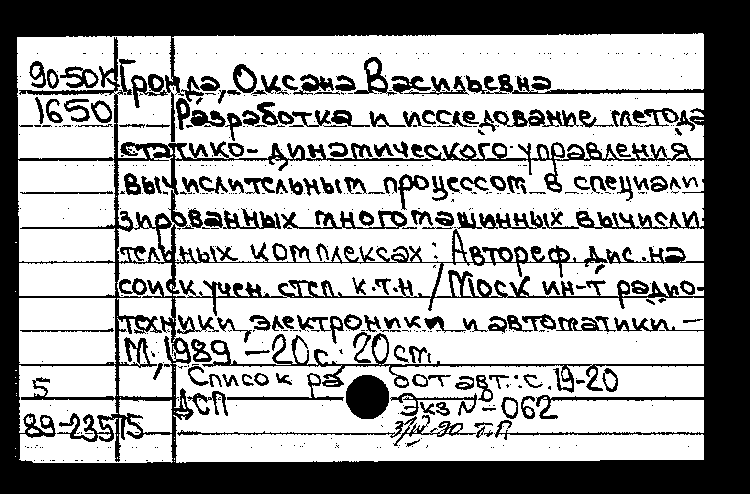 90-50К Гронда, Оксана Васильевна
1650 Разработка и исследование метода
статико-динамического управления
вычислительным процессом в специали-
зированных многомашинных вычисли-
тельных комплексах: Автореф. дис. на
соиск. учен. степ. к.т.н. / Моск ин-т радио-
техники, электроники и автоматики. –
М., 1989. – 20 с.: 20 см.
Список работ авт.: с. 19-20
5 ДСП Экз № 062
89-23575